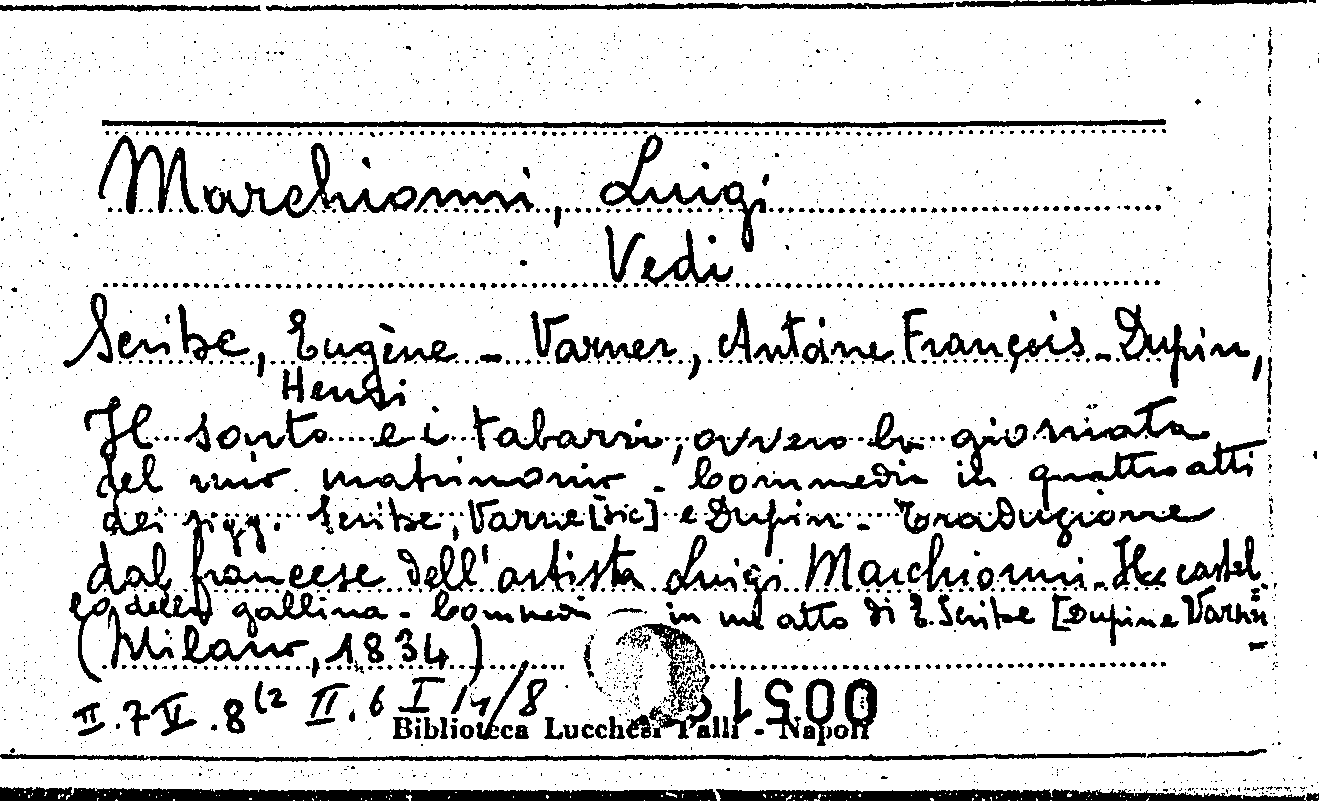 Marchionni, Luigi
Vedi
Scribe, Eugène - Varner, Antoine François - Dupin,
Henri
Il sarto e i tabarri, ovvero la giornata
del mio matrimonio - Commedia in quattro atti
dei sigg. Scribe, Varne [sic] e Dupin - Traduzione
dal francese dell'artista Luigi Marchionni - Il castel
lo della gallina - Commedia in un atto di E. Scribe [Dupin e Varner]
(Milano, 1834)
II.7 V.8(2 II.6 I 14/8
Biblioteca Lucchesi Palli - Napoli